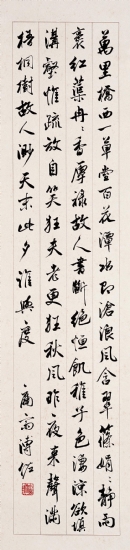 萬里橋西一草堂百花潭水即滄浪風含翠篠娟〻靜雨
裛紅蕖冉〻香厚祿故人書斷絕恒飢稚子色淒涼欲填
溝壑惟疏放自笑狂夫老更狂秋風昨夜來聲滿
梧桐樹故人渺天末此夕誰與度
溥佐